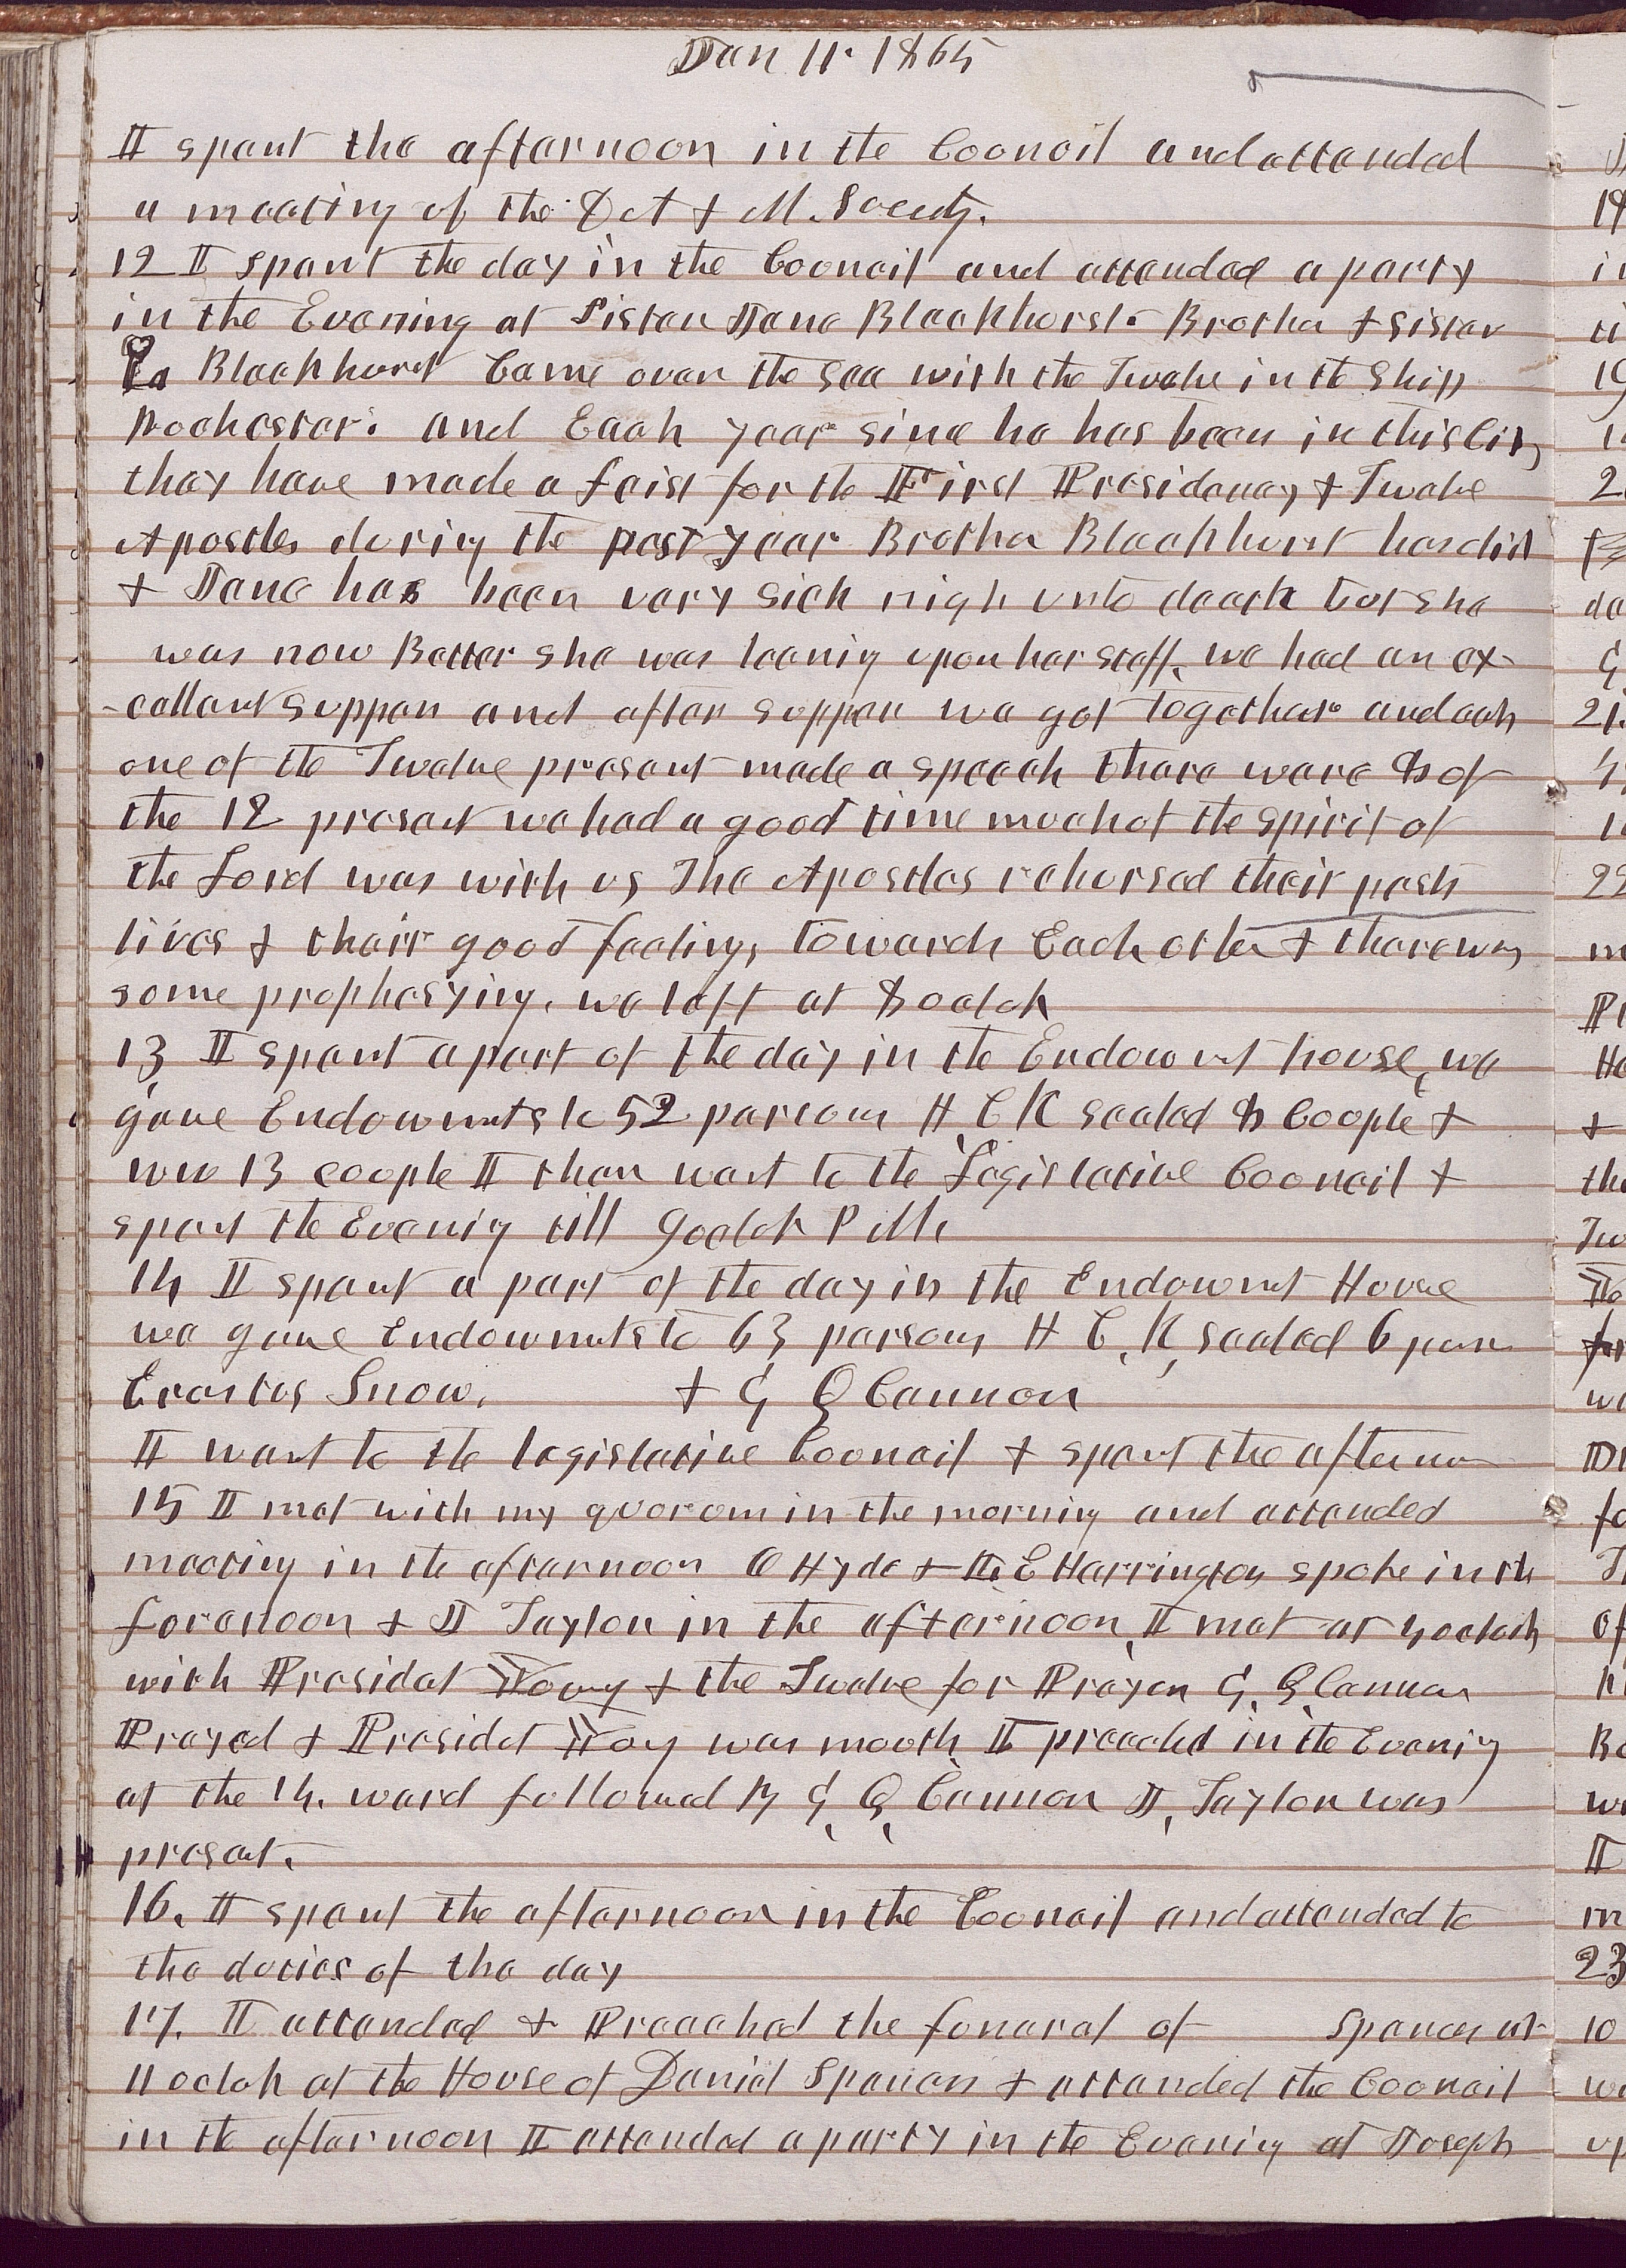 Jan 11. 1865
I spent the afternoon in the Councail and attended
a meeting of the D A & M. Society.
12 I spent the day in the Councail and attended a party
in the Evening at Sister Jane Blackhurst. Brother & Sister
Blackhurst Came over the sea with the Twelve in the Ship
Rochester. and Each year since he has been in this City
they have made a feist for the First Presidency & Twelve
Apostles during the past year Brother Blackhurst has died
& Jane has been very sick nigh unto death but she
was now Better she was leaning upon her staff. we had an ex-
-cellent supper and after supper we got together and each
one of the Twelve present made a speech there were 8 of
the 12 present we had a good time much of the spirit of
the Lord was with us The Apostles rehursed their past
lives & their good feelings towards Each other & there was
some prophesying. we left at 8 oclok
13 I spent a part of the day in the Endowmet house, we
gave Endowmets to 52 persons H C K sealed 8 Couple &
WW 13 couple I then went to the Legislative Councail &
spent the Evenig till 9 oclok P M.
14 I spent a part of the day in the Endowmet House
we gave Endowmets to 63 persons H C. K, sealed 6 
Erastus Snow. & G Q Cannon
I went to the legislative Councail & spent the afternoon
15 I met with my quorom in the morning and attended
meeting in the afternoon O Hyde & L E Harrington spoke in the
forenoon & J Taylor in the afternoon, I met at 4 oclok
with Presidet Young & the Twelve for Prayer G. Q Cannon
Prayed & Presidet Young was mouth I preached in the Evenig
at the 14. ward followed By G Q Cannon J, Taylor was
present.
16. I spent the afternoon in the Councail and attended to
the duties of the day
17. I attended & Preached the funeral of Spencer at
11 oclok at the House of Daniel Spencer & attended the Councail
in the afternoon I attended a party in the Evenig at Joseph